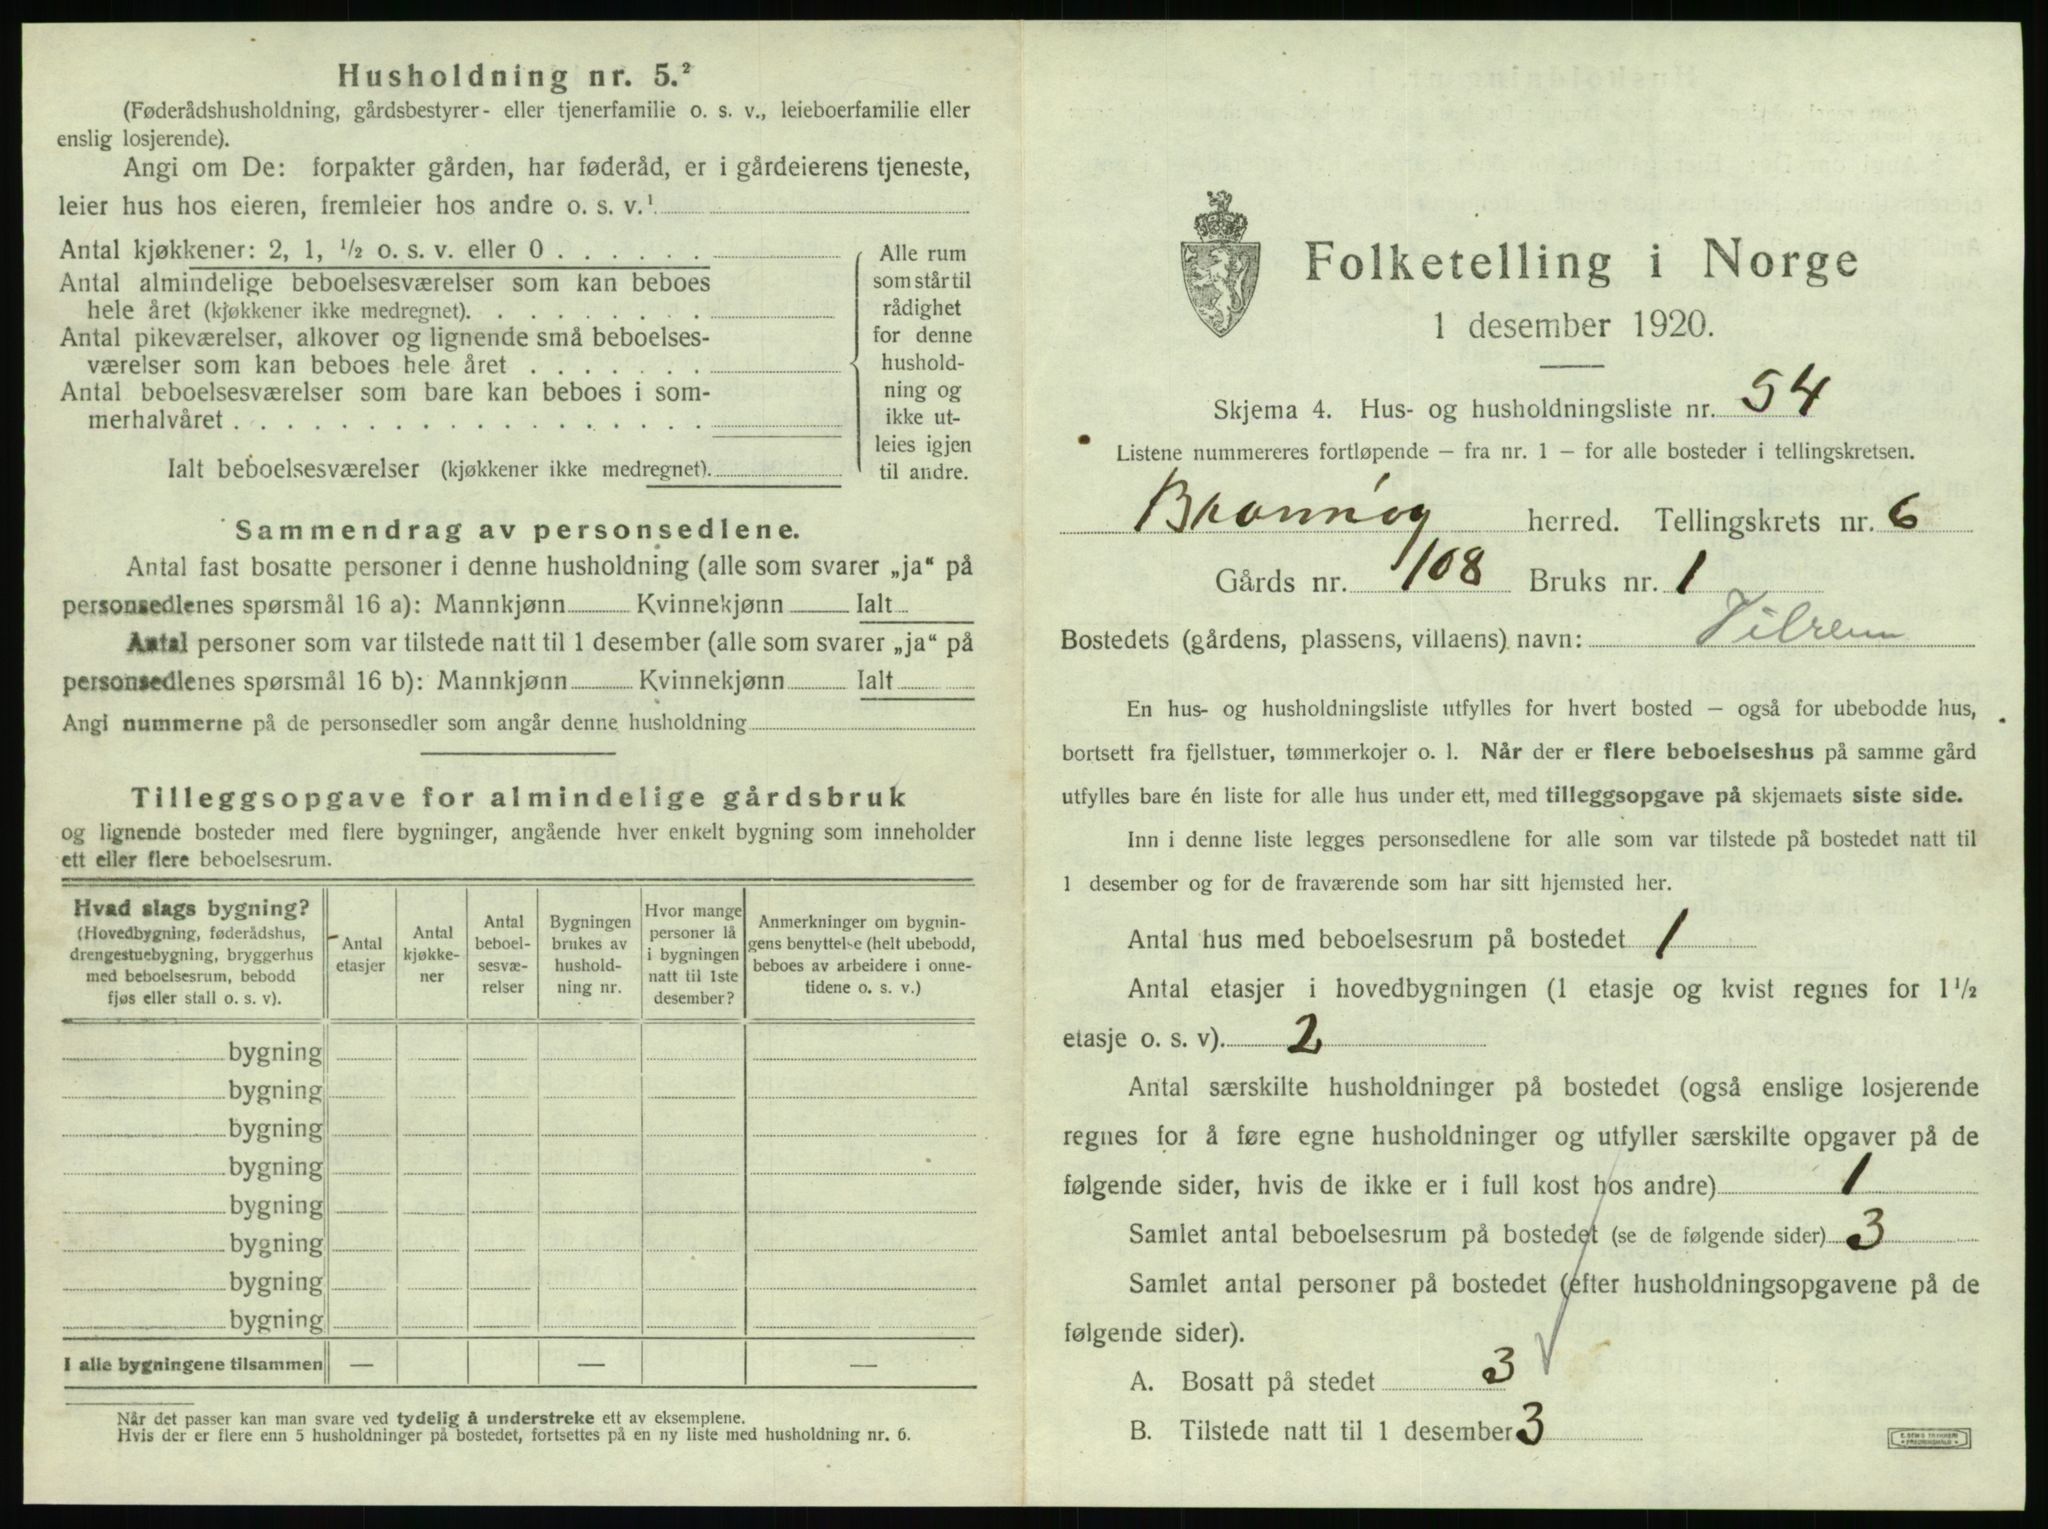 Husholdning nr. 5.²
(Føderådshusholdning, gårdsbestyrer- eller tjenerfamilie o. s. v., leieboerfamilie eller
enslig losjerende).
Angi om De: forpakter gården, har føderåd, er i gårdeierens tjeneste,
leier hus hos eieren, fremleier hos andre o. s. v.¹
Antal kjøkkener: 2, 1, ½ o. s. v. eller 0 . . . . . .
Antal almindelige beboelsesværelser som kan beboes
hele året (kjøkkener ikke medregnet). . . . . . . . .
Antal pikeværelser, alkover og lignende små beboelses-
værelser som kan beboes hele året . . . . . . .
Antal beboelsesværelser som bare kan beboes i som-
merhalvåret . . . . . . . . . . . . . . . . . .
Ialt beboelsesværelser (kjøkkener ikke medregnet).
Alle rum
som står til
rådighet
for denne
hushold-
ning og
ikke ut-
leies igjen
til andre.
Sammendrag av personsedlene.
Antal fast bosatte personer i denne husholdning (alle som svarer „ja“ på
personsedlenes spørsmål 16 a): Mannkjønn Kvinnekjønn Ialt
Antal personer som var tilstede natt til 1 desember (alle som svarer „ja“ på
personsedlenes spørsmål 16 b): Mannkjønn Kvinnekjønn Ialt
Angi nummerne på de personsedler som angår denne husholdning
Tilleggsopgave for almindelige gårdsbruk
og lignende bosteder med flere bygninger, angående hver enkelt bygning som inneholder
ett eller flere beboelsesrum.
Hvad slags bygning?
(Hovedbygning, føderådshus,
drengestuebygning, bryggerhus
med beboelsesrum, bebodd
fjøs eller stall o. s. v).
Antal
etasjer
Antal
kjøkke-
ner
Antal
beboel-
sesvæ-
relser
Bygningen
brukes av
hushold-
ning nr.
Hvor mange
personer lå
i bygningen
natt til 1ste
desember?
Anmerkninger om bygnin-
gens benyttelse (helt ubebodd,
beboes av arbeidere i onne-
tidene o. s. v.)
bygning
bygning
bygning
bygning
bygning
bygning
bygning
bygning
I alle bygningene tilsammen — — —
Når det passer kan man svare ved tydelig å understreke ett av eksemplene.
Hvis der er flere enn 5 husholdninger på bostedet, fortsettes på en ny liste med husholdning nr. 6.
Folketelling i Norge
1 desember 1920.
Skjema 4. Hus- og husholdningsliste nr. 54
Listene nummereres fortløpende – fra nr. 1 – for alle bosteder i tellingskretsen.
Brønnøy herred. Tellingskrets nr. 6
Gårds nr. 108 Bruks nr. 1
Bostedets (gårdens, plassens, villaens) navn: Vilrem
En hus- og husholdningsliste utfylles for hvert bosted – også for ubebodde hus,
bortsett fra fjellstuer, tømmerkojer o. l. Når der er flere beboelseshus på samme gård
utfylles bare én liste for alle hus under ett, med tilleggsopgave på skjemaets siste side.
Inn i denne liste legges personsedlene for alle som var tilstede på bostedet natt til
1 desember og for de fraværende som har sitt hjemsted her.
Antal hus med beboelsesrum på bostedet 1
Antal etasjer i hovedbygningen (1 etasje og kvist regnes for 1½
etasje o. s. v). 2
Antal særskilte husholdninger på bostedet (også enslige losjerende
regnes for å føre egne husholdninger og utfyller særskilte opgaver på de
følgende sider, hvis de ikke er i full kost hos andre) 1
Samlet antal beboelsesrum på bostedet (se de følgende sider) 3
Samlet antal personer på bostedet (efter husholdningsopgavene på de
følgende sider).
A. Bosatt på stedet 3
B. Tilstede natt til 1 desember 3